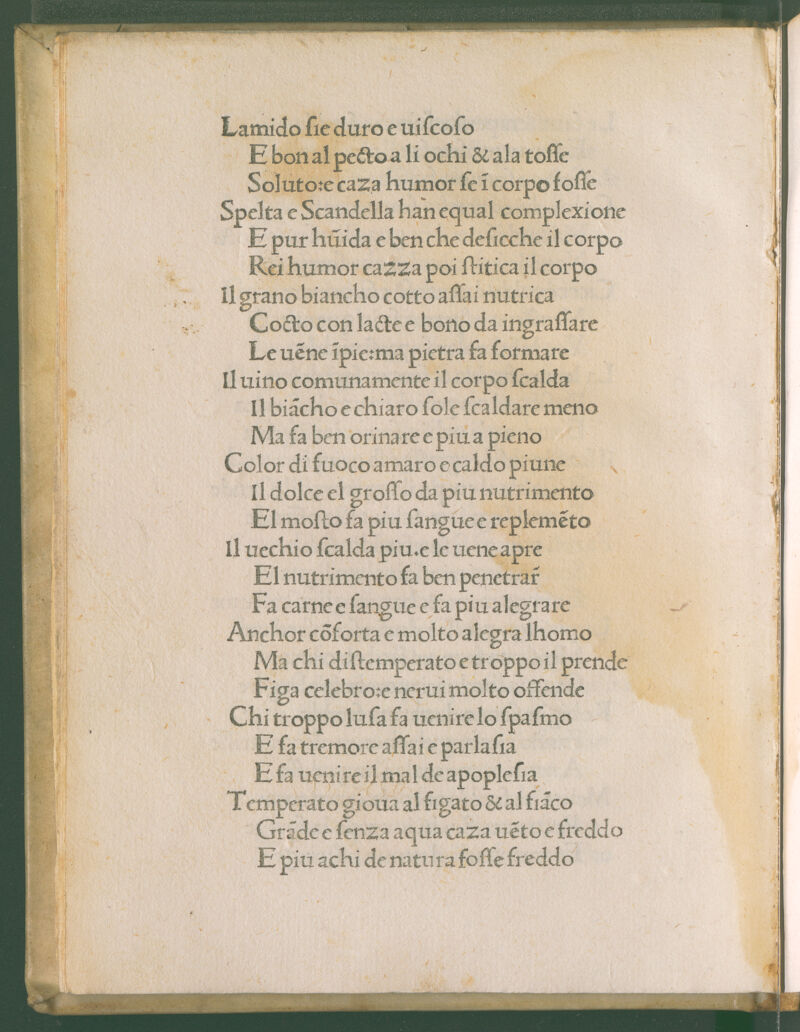 Lamido ſie duro e uiſcoſo
E bon al pecto a li ochi & ala toſſe
Soluto:e caza humor ſe ī corpo foſſe
Spelta e Scandella han equal complexione
E pur hūida e ben che deſicche il corpo
Rei humor cazza poi ſtitica il corpo
Il grano biancho cotto aſſai nutrica
Cocto con lacte e bono da ingraſſare
Le uēne īpie:ma pietra fa formare
Il uino comunamente il corpo ſcalda
Il biācho e chiaro ſole ſcaldare meno
Ma fa ben orinare e piu a pieno
Color di fuoco amaro e caldo piune
Il dolce el groſſo da piu nutrimento
El moſto fa piu ſangue e replemēto
Il uechio ſcalda piu.e le uene apre
El nutrimento fa ben penetrar̄
Fa carne e ſangue e fa piu alegrare
Anchor cōforta e molto alegra lhomo
Ma chi diſtemperato e troppo il prende
Figa celebro:e nerui molto offende
Chi troppo luſa fa uenire lo ſpaſmo
E fa tremore aſſai e parlaſia
E fa uenire il mal de apopleſia
Temperato gioua al figato & al fiāco
Grāde e ſenza aqua caza uēto e freddo
E piu achi de natura foſſe freddo